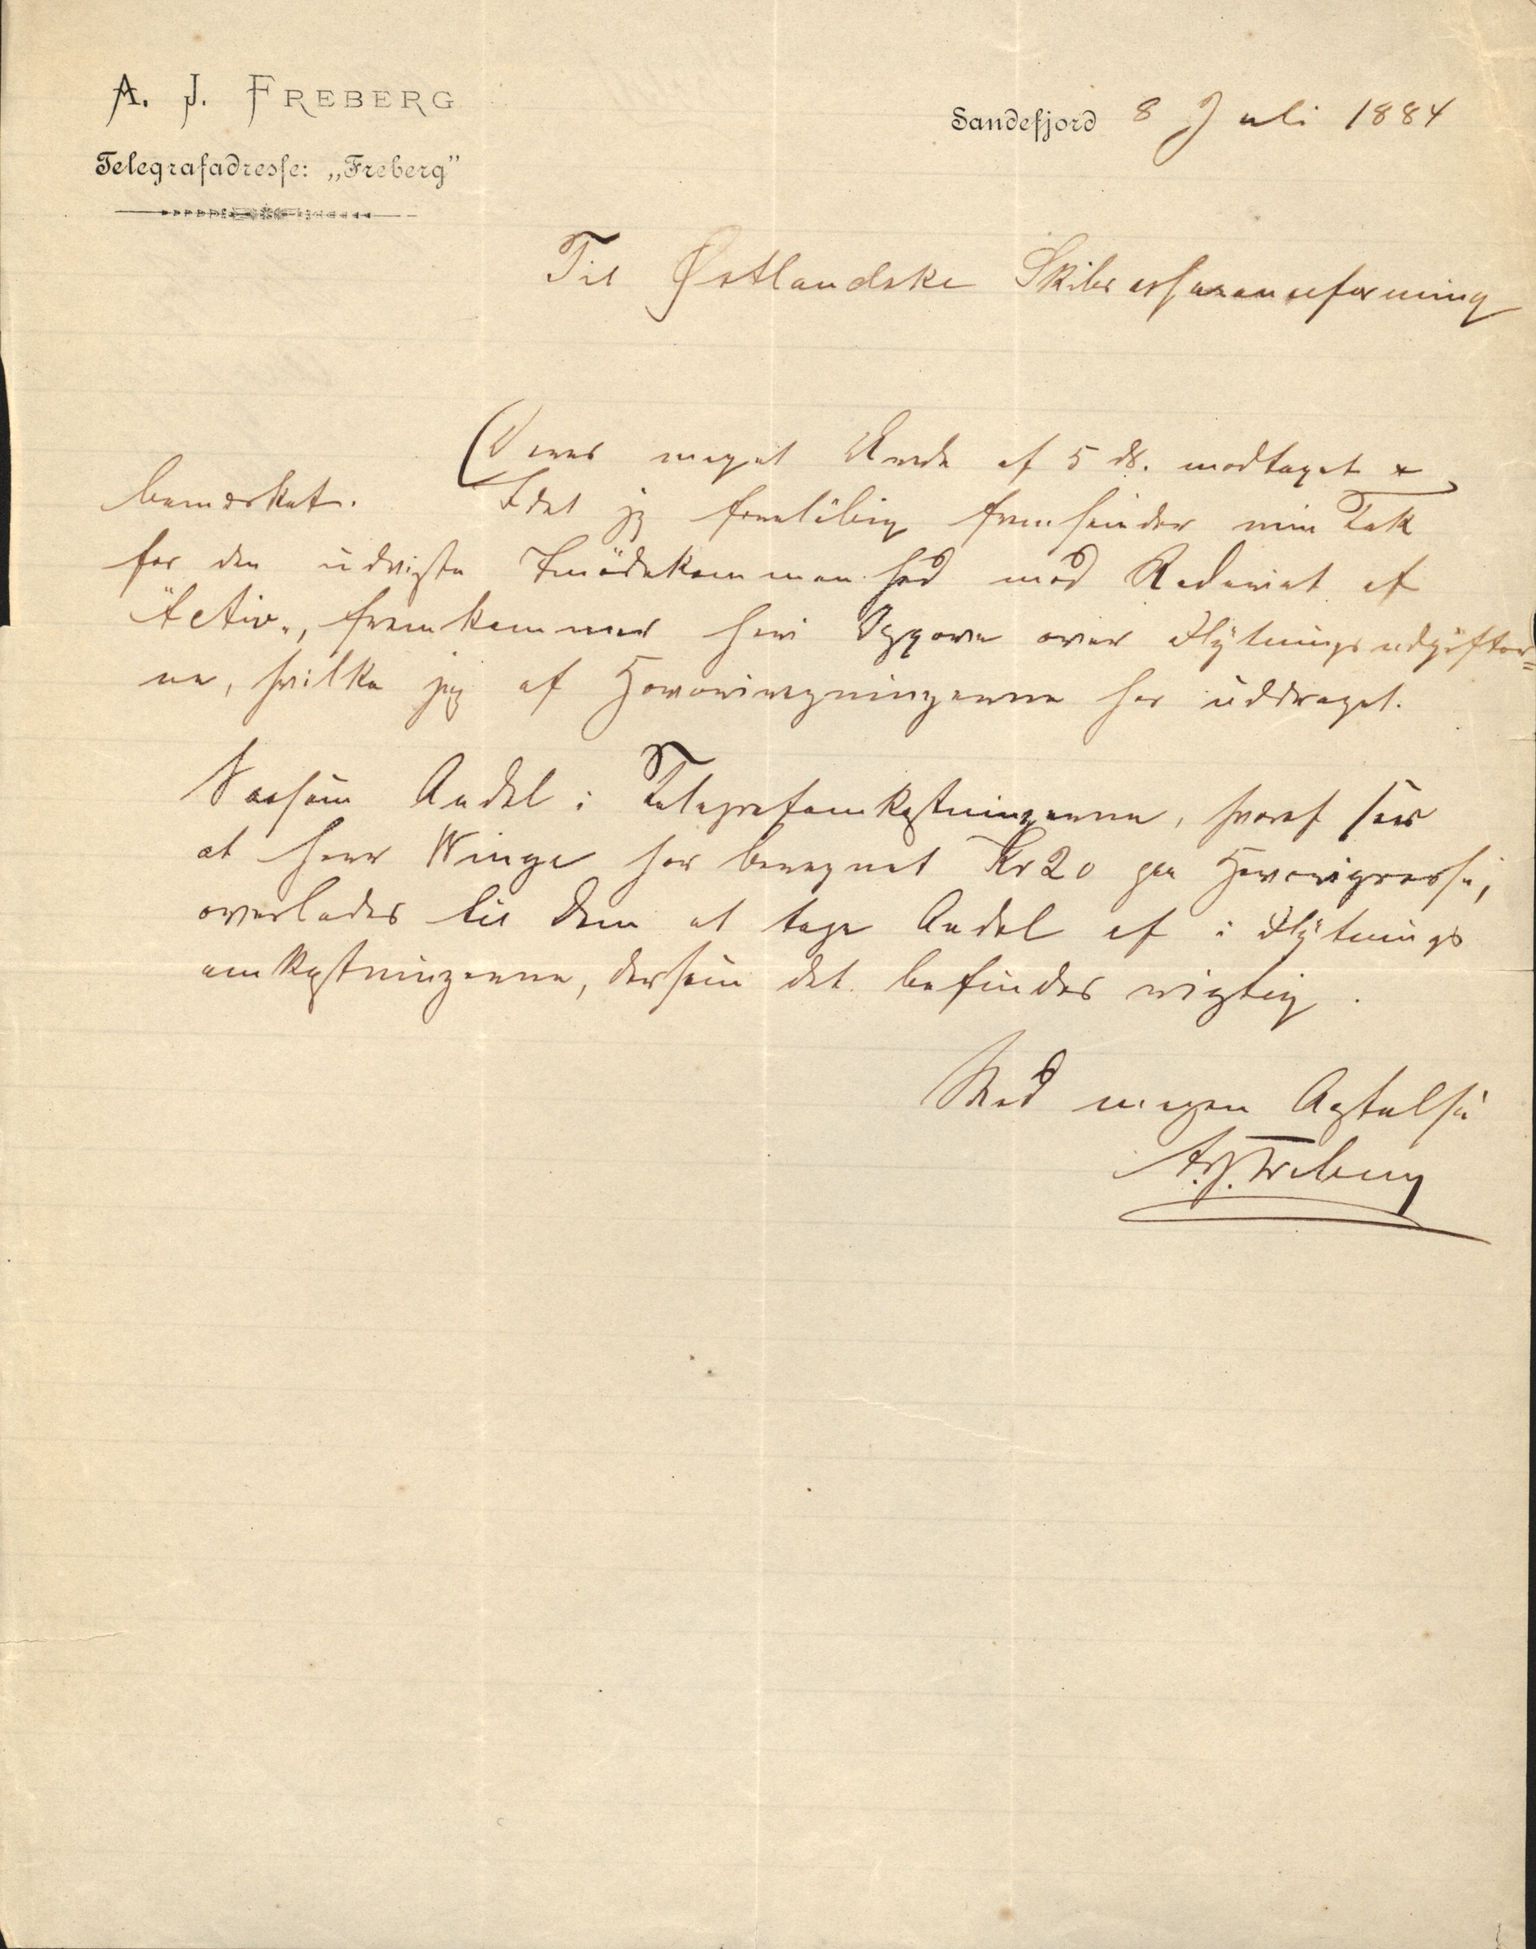 A. J. FREBERG
Telegrafadresse: „Freberg”
Sandefjord 8 Juli 1884
Til Østlandske Skibsassuranceforening
Deres meget Ærede af 5 ds. modtaget &
bemærket. Idet jeg foreløbig fremsender min Tak
for den udviste Imødekommenhed mod Rederiet af
"Activ", fremkommer heri Opgave over Flytningsudgifter=
ne, hvilke jeg af Havariregningerne har uddraget.
Saasom Andel i Telegrafomkostningerne, hvoraf sees
at Herr Winge har beregnet Kr 20 paa Havarigrosse,
overlades til Dem at tage Andel af i Flytnings
omkostningerne, dersom det befindes rigtig.
Med megen Agtelse
A. J. Freberg